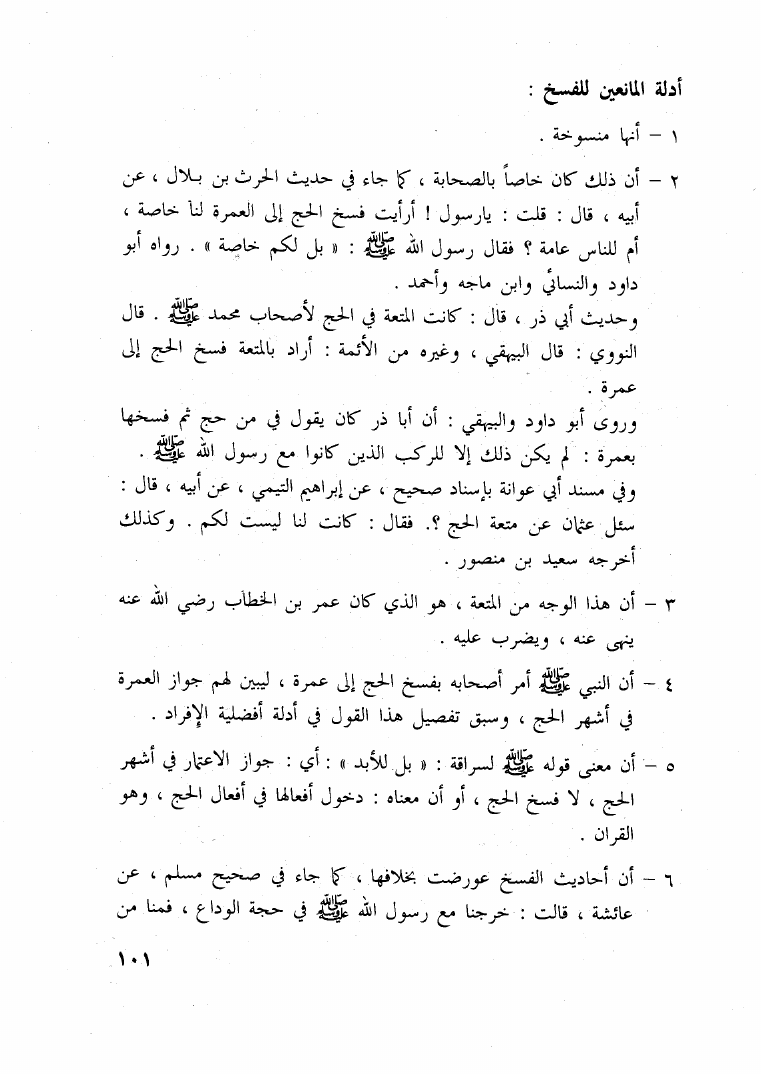 أدلة المانعين للفسخ :
١ – أنها منسوخة .
٢ – أن ذلك كان خاصاً بالصحابة ، كما جاء في حديث الحرث بن بلال ، عن
أبيه ، قال : قلت : يارسول ! أرأيت فسخ الحج إلى العمرة لنا خاصة ،
أم للناس عامة ؟ فقال رسول الله ﷺ : « بل لكم خاصة » . رواه أبو
داود والنسائي وابن ماجه وأحمد .
وحديث أبي ذر ، قال : كانت المتعة في الحج لأصحاب محمد ﷺ . قال
النووي : قال البيهقي ، وغيره من الأئمة : أراد بالمتعة فسخ الحج إلى
عمرة .
وروى أبو داود والبيهقي : أن أبا ذر كان يقول في من حج ثم فسخها
بعمرة : لم يكن ذلك إلا للركب الذين كانوا مع رسول الله ﷺ .
وفي مسند أبي عوانة بإسناد صحيح ، عن إبراهيم التيمي ، عن أبيه ، قال :
سئل عثمان عن متعة الحج ؟. فقال : كانت لنا ليست لكم . وكذلك
أخرجه سعيد بن منصور .
٣ – أن هذا الوجه من المتعة ، هو الذي كان عمر بن الخطاب رضي الله عنه
ينهى عنه ، ويضرب عليه .
٤ – أن النبي ﷺ أمر أصحابه بفسخ الحج إلى عمرة ، ليبين لهم جواز العمرة
في أشهر الحج ، وسبق تفصيل هذا القول في أدلة أفضلية الإفراد .
٥ – أن معنى قوله ﷺ لسراقة : « بل للأبد » : أي : جواز الاعتمار في أشهر
الحج ، لا فسخ الحج ، أو أن معناه : دخول أفعالها في أفعال الحج ، وهو
القران .
٦ – أن أحاديث الفسخ عورضت بخلافها ، كما جاء في صحيح مسلم ، عن
عائشة ، قالت : خرجنا مع رسول الله ﷺ في حجة الوداع ، فمنا من
١٠١